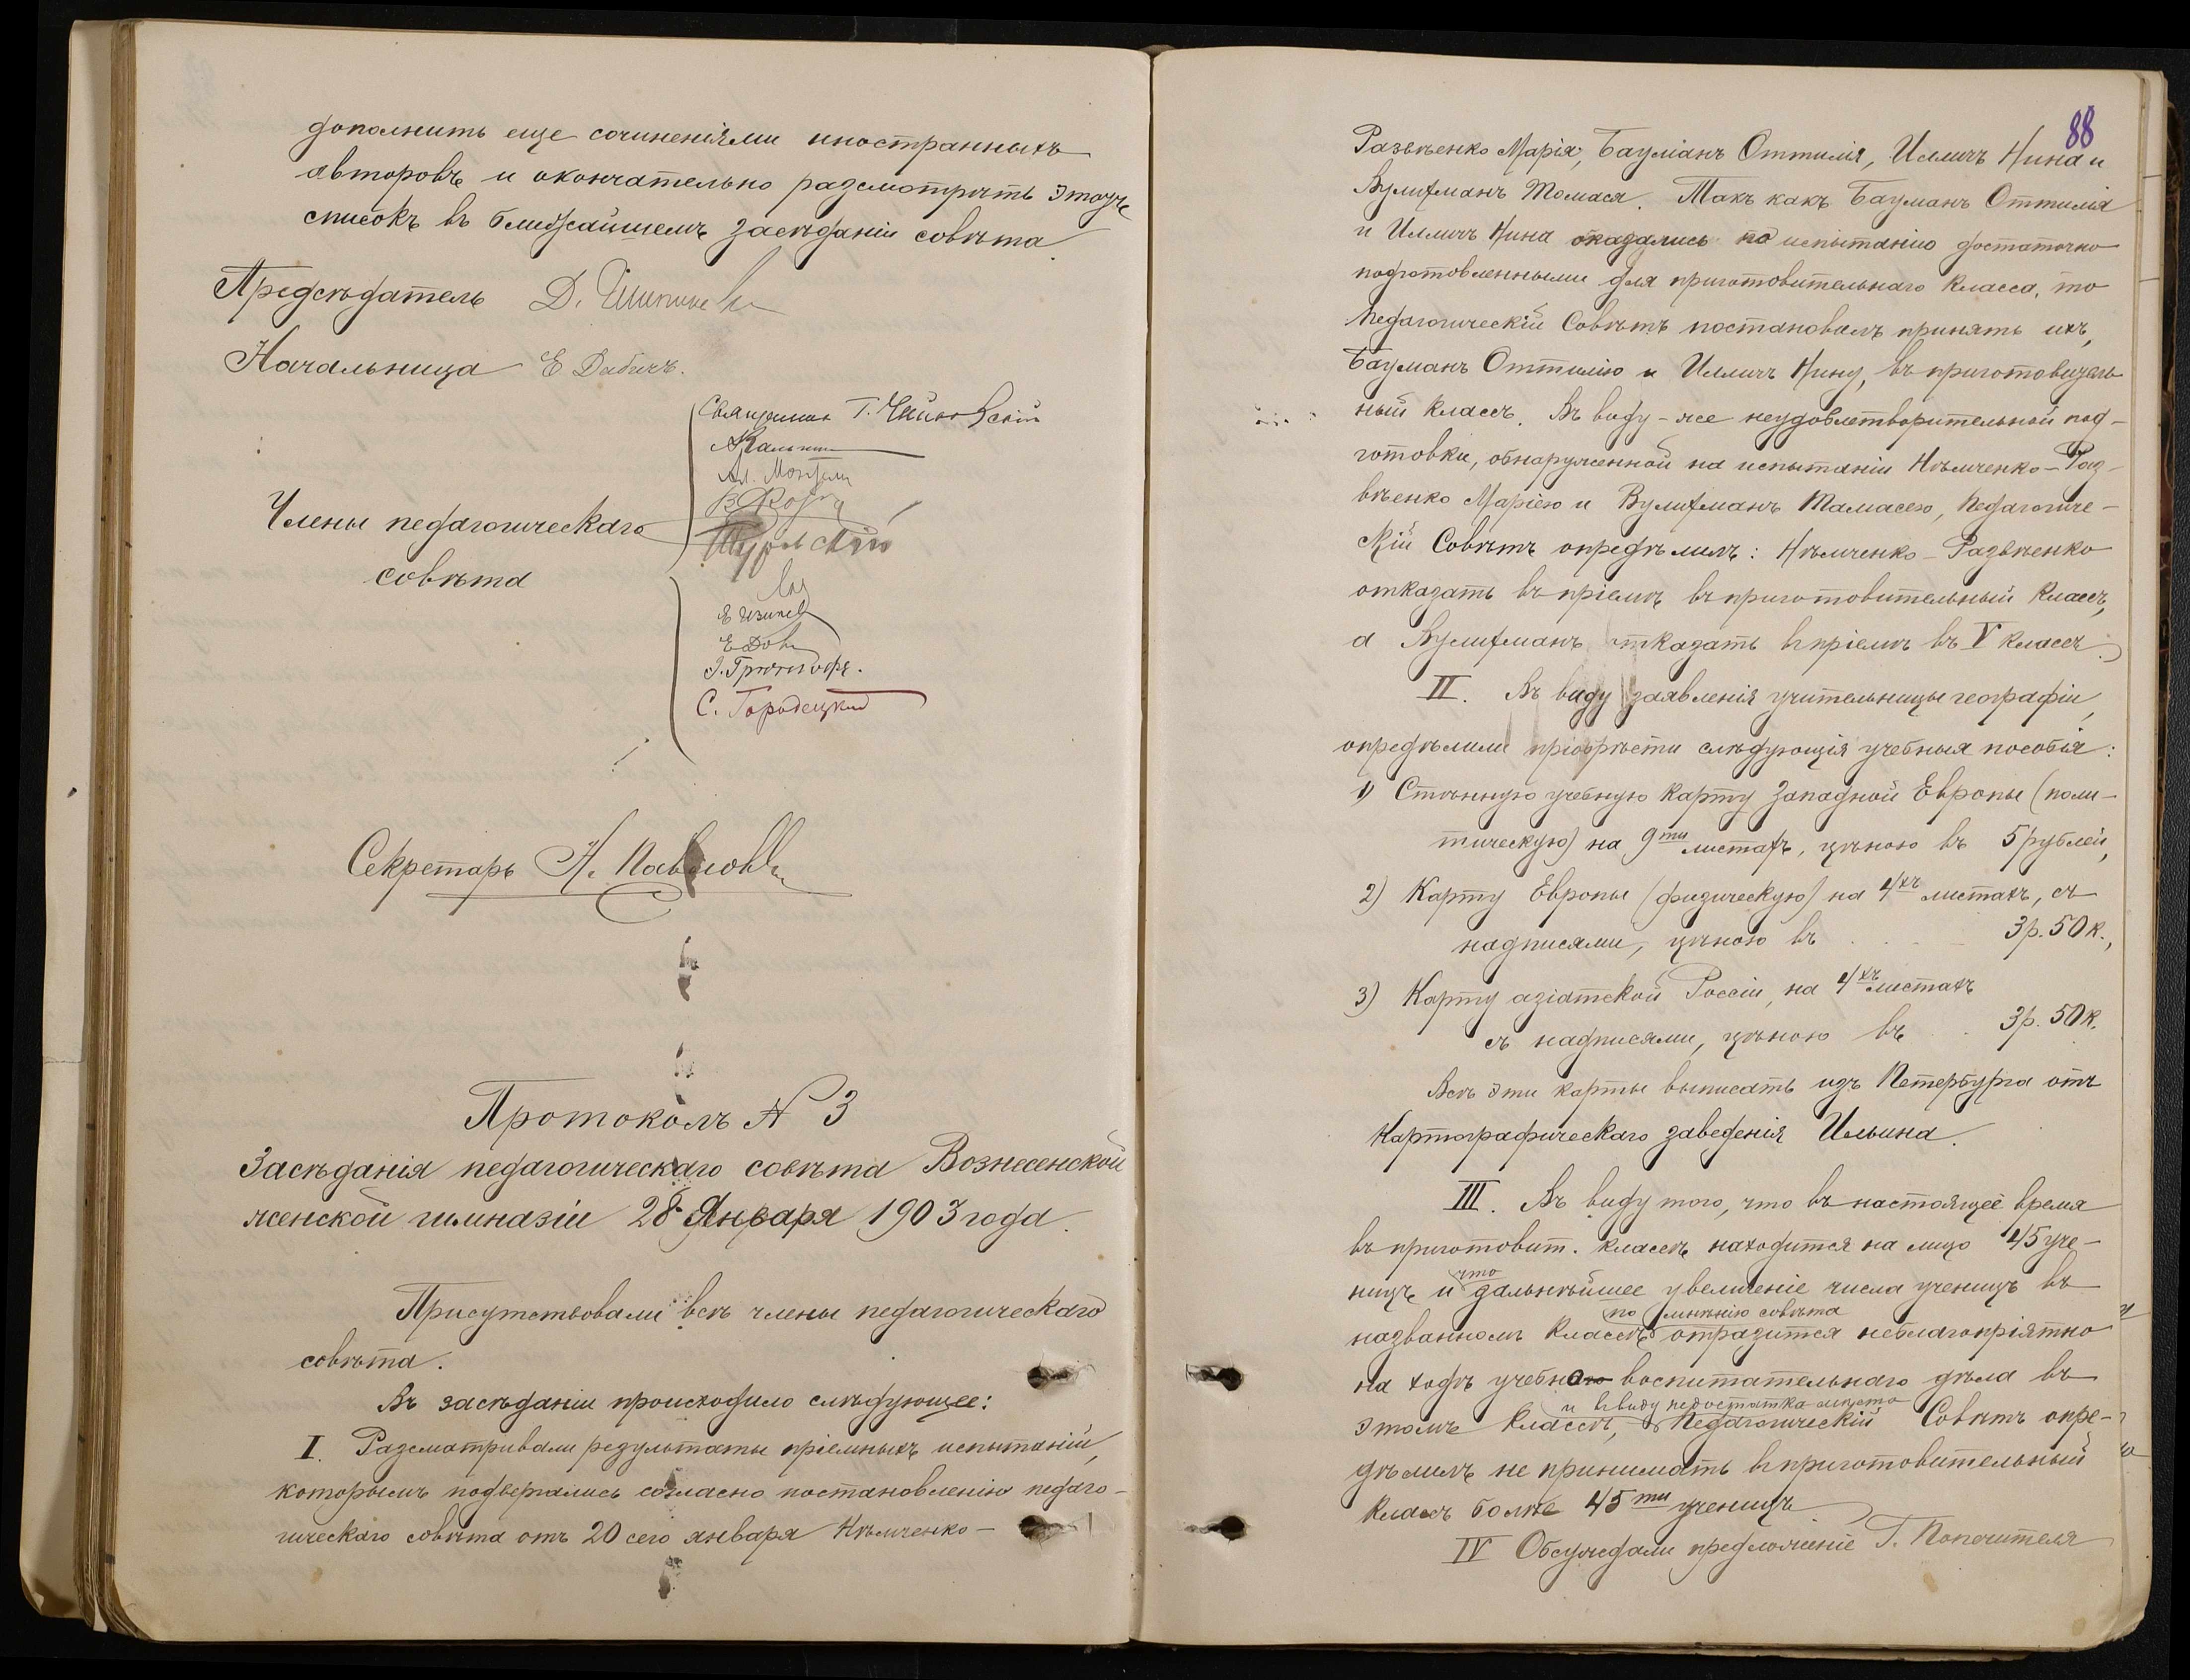 дополнить еще сочиненіями иностранныхъ
авторовъ и окончательно разсмотрѣть этотъ
списокъ въ ближайшемъ засѣданіи совѣта.
Предсѣдатель Д.
Начальница Е Дабичъ.
Священникъ Г. Чайковскій
Ал.
Члены педагогическаго
совѣта
С. Городецкій
Секретарь Н. Павловъ
Протоколъ N 3
Засѣданія педагогическаго совѣта Вознесенской
женской гимназіи 28 Января 1903 года.
Присутствовали всѣ члены педагогическаго
совѣта.
Въ засѣданіи происходило слѣдующее:
I. Разсматривали результаты пріемныхъ испытаній,
которымъ подвергались согласно постановленію педаго-
гическаго совѣта отъ 20 сего января Нѣмченко-
88
Развѣенко Марія, Бауманъ Оттилія, Илличъ Нина и
Вулифманъ Томася. Такъ какъ Бауманъ Оттилія
и Илличъ Нина оказались по испытанію достаточно
подготовленными для приготовительнаго класса, то
Педагогическій Совѣтъ постановилъ принять ихъ,
Бауманъ Оттилію и Илличъ Нину, въ приготовитель
ный классъ. Въ виду-же неудовлетворительной под-
готовки, обнаруженной на испытаніи Нѣмченко-Раз-
вѣенко Маріею и Вулифманъ Тамасею, Педагогиче-
скій Совѣтъ опредѣлилъ: Нѣмченко-Развѣенко
отказать въ пріемѣ въ приготовительный классъ,
а Вулифманъ отказать в пріемѣ въ V классъ.
II. Въ виду заявленія учительницы географіи,
опредѣлили пріобрѣсти слѣдующія учебныя пособія:
1) Стѣнную учебную карту Западной Европы (поли-
тическую) на 9ти листахъ, цѣною въ 5 рублей,
2) Карту Европы (физическую) на 4хъ листахъ, съ
надписями, цѣною въ . . . 3р. 50к.,
3) Карту азіатской Россіи, на 4хъ листахъ
съ надписями, цѣною въ . 3р. 50к.
Всѣ эти карты выписать изъ Петербурга отъ
Картографическаго заведенія Ильина.
III. Въ виду того, что въ настоящее время
въ приготовит. классѣ находится на лицо 45 уче-
ницъ и что дальнѣйшее увеличеніе числа ученицъ въ
названномъ классѣ по мнѣнію совѣта отразится неблагопріятно
на ходѣ учебно воспитательнаго дѣла въ
этомъ классѣ, и ввиду недостатка мѣста Педагогическій Совѣтъ опре-
дѣлилъ не принимать в приготовительный
классъ болѣе 45ти ученицъ
IV Обсуждали предложеніе Г. Попечителя